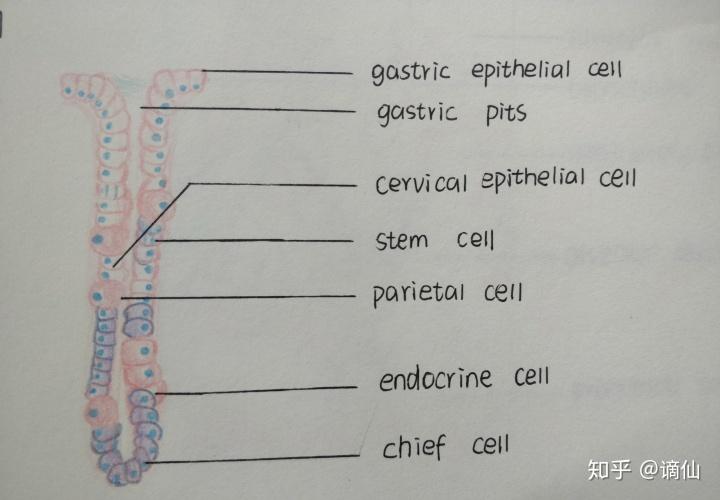 gastric epithelial cell
gastric pits
cervical epithelial cell
stem cell
parietal cell
endocrine cell
chief cell
知乎 @谪仙